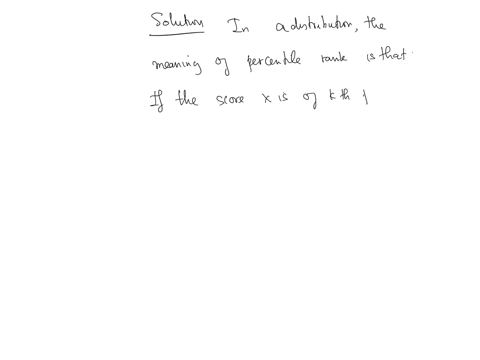 Solution In a distribution, the
meaning of percentile rank is that.
If the score x is of k th